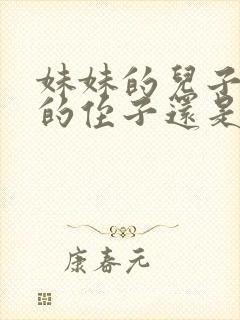 妹妹的兒子
的侄子還是
康春元